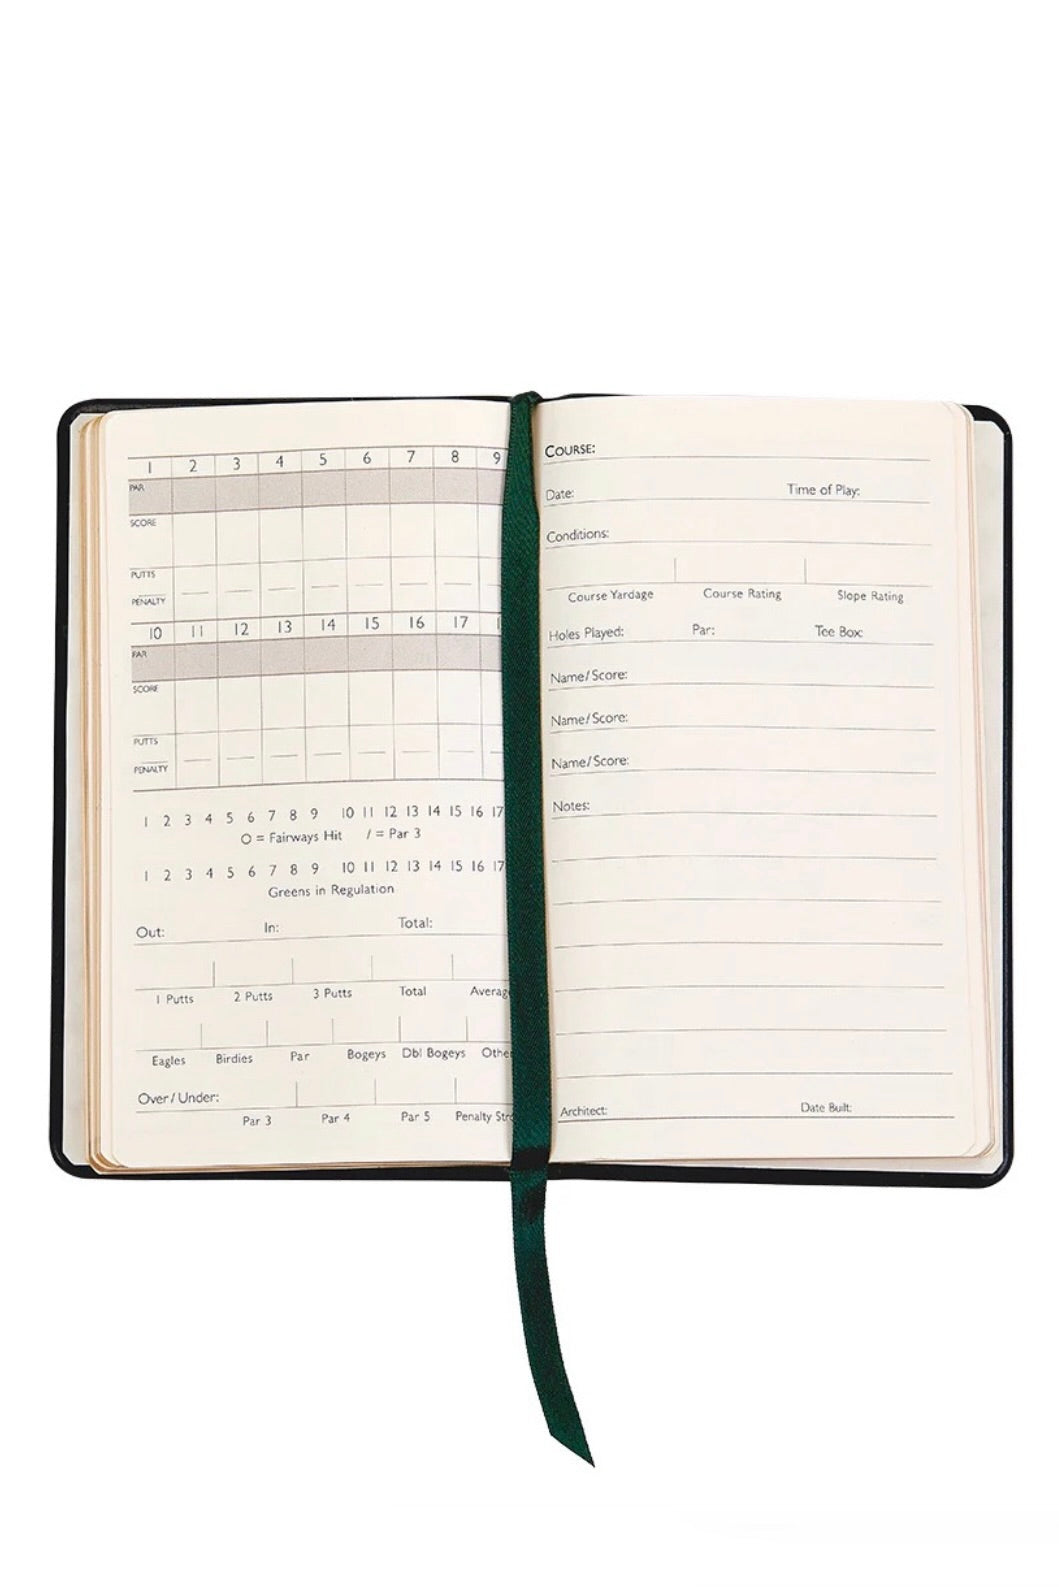 1 2 3 4 5 6 7 8 9
PAR
SCORE
PUTTS
PENALTY
10 11 12 13 14 15 16 17
PAR
SCORE
PUTTS
PENALTY
1 2 3 4 5 6 7 8 9 10 11 12 13 14 15 16 17
O = Fairways Hit / = Par 3
1 2 3 4 5 6 7 8 9 10 11 12 13 14 15 16 17
Greens in Regulation
Out: In: Total:
1 Putts 2 Putts 3 Putts Total Averag
Eagles Birdies Par Bogeys Dbl Bogeys Othe
Over / Under:
Par 3 Par 4 Par 5 Penalty Str
COURSE:
Date: Time of Play:
Conditions:
Course Yardage Course Rating Slope Rating
Holes Played: Par: Tee Box:
Name/Score:
Name/Score:
Name/Score:
Notes:
Architect: Date Built: